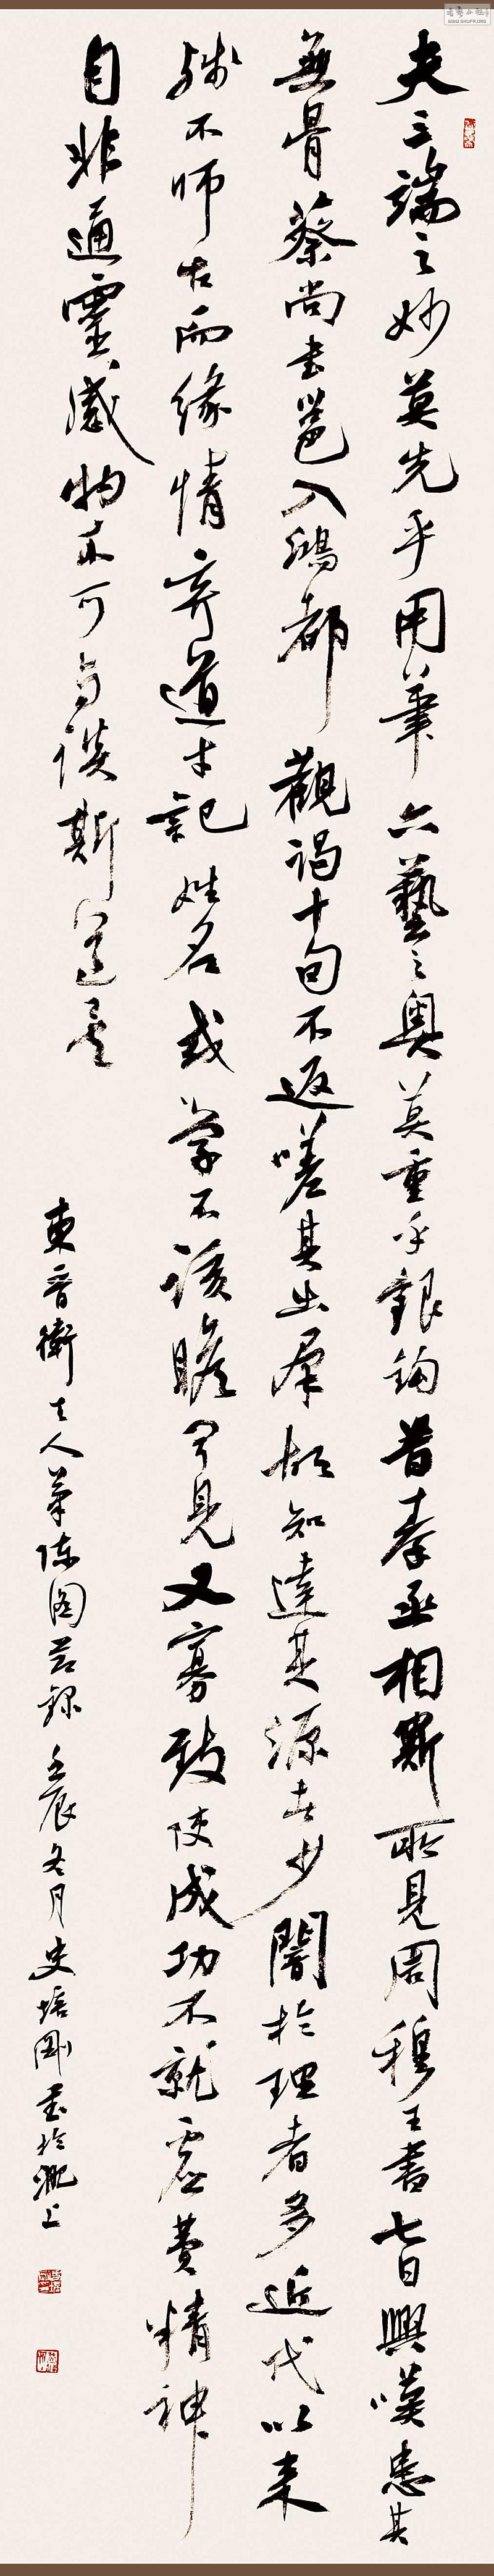 夫三端之妙莫先乎用筆六藝之奧莫重乎銀鉤昔秦丞相斯所見周穆王書七日興嘆患其
無骨蔡尚書邕入鴻都觀碣十旬不返嗟其出羣故知達其源者少闇於理者多近代以來
殊不師古而緣情弃道才記姓名或學不該贍聞見又寡致使成功不就虛費精神
自非通靈感物不可與談斯道矣
東晉衛夫人筆陣圖節錄 壬辰冬月史培剛書於淝上
WWW.SHUFR.ORG